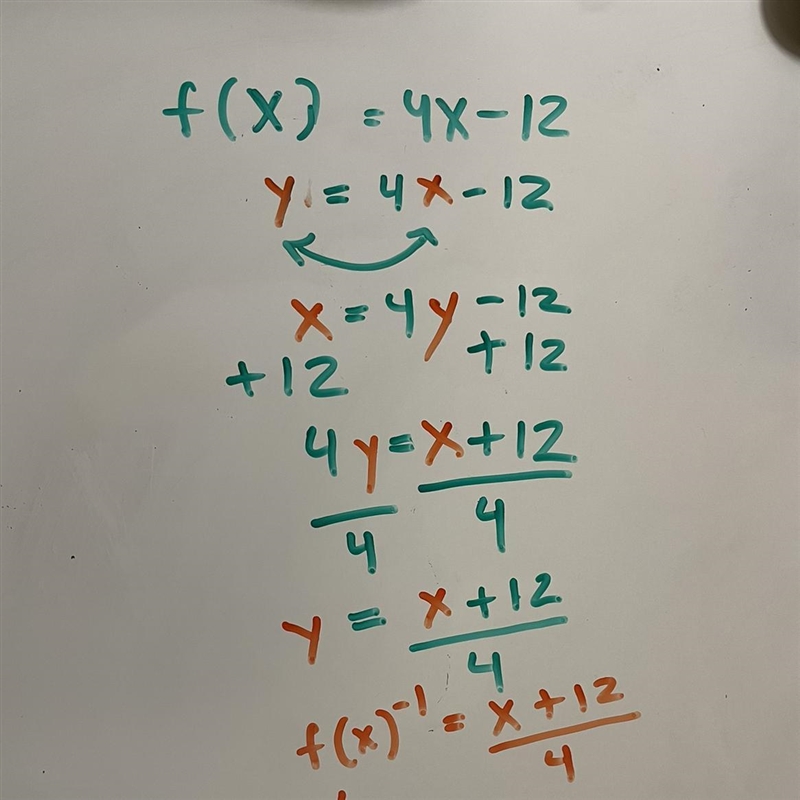 f(x) = 4x - 12
y = 4x - 12
x = 4y - 12
+12 +12
4y = x + 12
4 4
y = x + 12
4
f(x)⁻¹ = x + 12
4